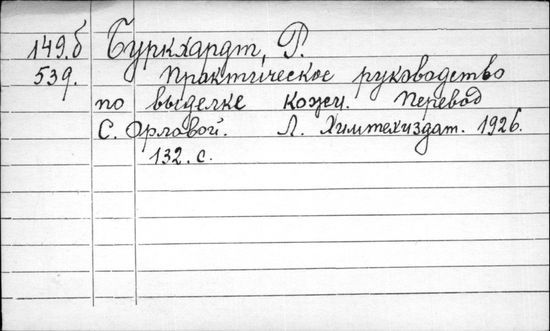 149.б Буркхардт, Р.
539. Практическое руководство
по выделке кожи. Перевод
С. Орловой. Л. Химтехиздат. 1926.
132. с.